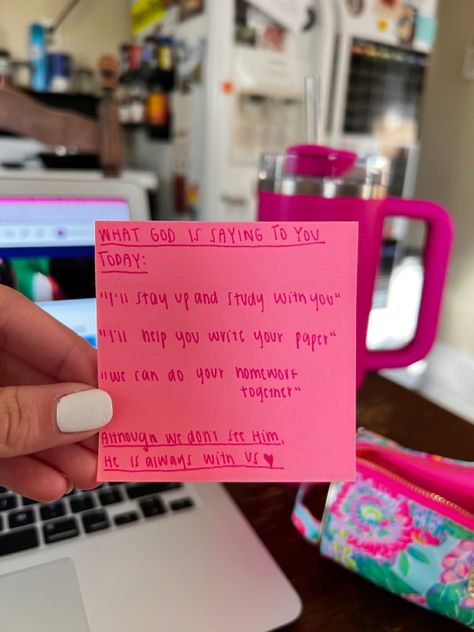 WHAT GOD IS SAYING TO YOU
TODAY:
"I'll stay up and study with you"
"I'll help you write your paper"
"we can do your homework
together"
Although we don't see Him,
He is always with us ♥